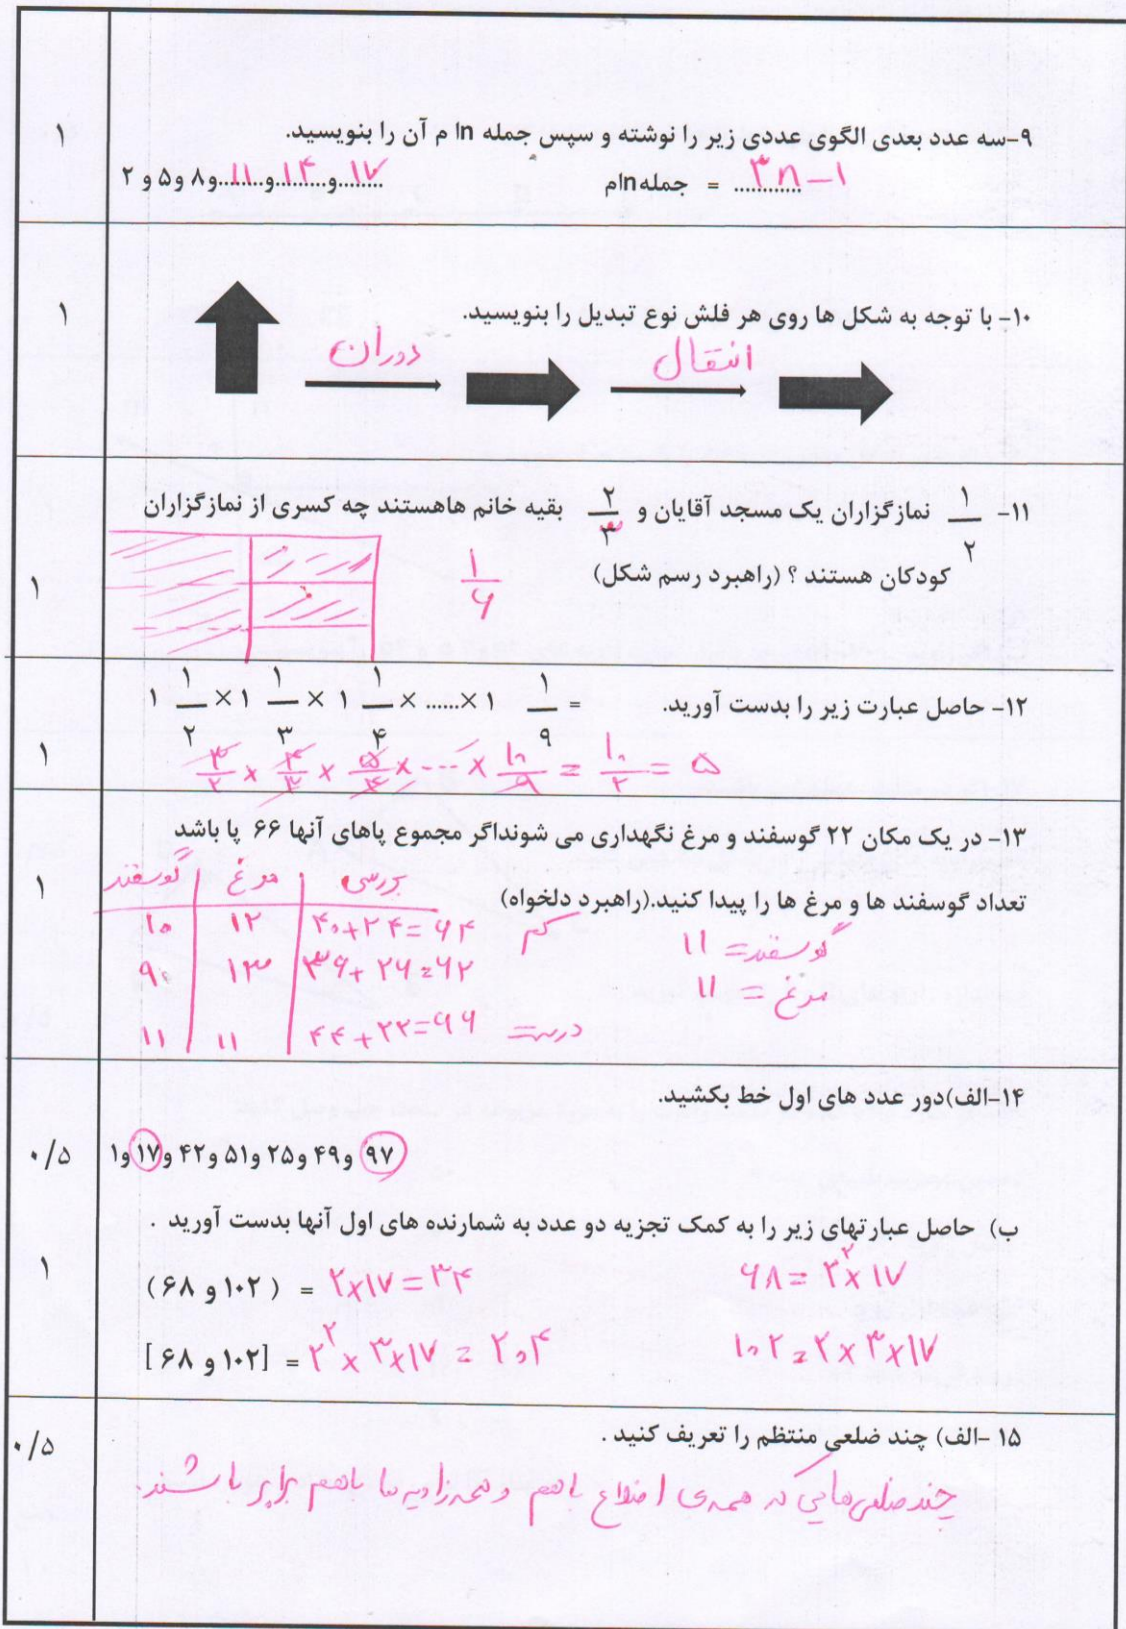 ۱
۹-سه عدد بعدی الگوی عددی زیر را نوشته و سپس جمله nا م آن را بنویسید.
۲ و ۵ و ۸ و...۱۱...و...۱۴...و...۱۷...
جمله nام = ............ ۳n-۱
۱
۱۰- با توجه به شکل ها روی هر فلش نوع تبدیل را بنویسید.
دوران
انتقال
۱
۱۱- ۱/۲ نمازگزاران یک مسجد آقایان و ۲/۳ بقیه خانم هاهستند چه کسری از نمازگزاران
کودکان هستند ؟ (راهبرد رسم شکل)
۱/۶
۱
۱۲- حاصل عبارت زیر را بدست آورید.
۱ ۱/۲ × ۱ ۱/۳ × ۱ ۱/۴ × ......× ۱ ۱/۹ =
۳/۲ × ۴/۳ × ۵/۴ × --- × ۱۰/۹ = ۱۰/۲ = ۵
۱
۱۳- در یک مکان ۲۲ گوسفند و مرغ نگهداری می شونداگر مجموع پاهای آنها ۶۶ پا باشد
تعداد گوسفند ها و مرغ ها را پیدا کنید.(راهبرد دلخواه)
گوسفند | مرغ | بررسی
۱۰ | ۱۲ | ۴۰+۲۴=۶۴ کم
۹ | ۱۳ | ۳۶+۲۶=۶۲
۱۱ | ۱۱ | ۴۴+۲۲=۶۶ درست
گوسفند = ۱۱
مرغ = ۱۱
۱۴-الف)دور عدد های اول خط بکشید.
۰/۵
۱و ۱۷و ۴۲ و ۵۱ و ۲۵ و ۴۹ و ۹۷
ب) حاصل عبارتهای زیر را به کمک تجزیه دو عدد به شمارنده های اول آنها بدست آورید .
۱
(۶۸ و ۱۰۲) = ۲×۱۷=۳۴
۶۸=۲²×۱۷
[۶۸ و ۱۰۲] = ۲²×۳×۱۷=۲۰۴
۱۰۲=۲×۳×۱۷
۱۵ -الف) چند ضلعی منتظم را تعریف کنید .
۰/۵
چندضلعی‌هایی که همه‌ی اضلاع باهم و همه زاویه ها باهم برابر باشند.